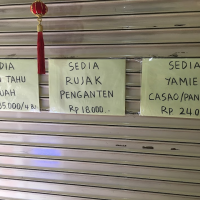 EDIA
TAHU
UAH
35.000/4 BJ
SEDIA
RUJAK
PENGANTEN
Rp 18000
SEDIA
YAMIE
CASAO/PAN
Rp 240